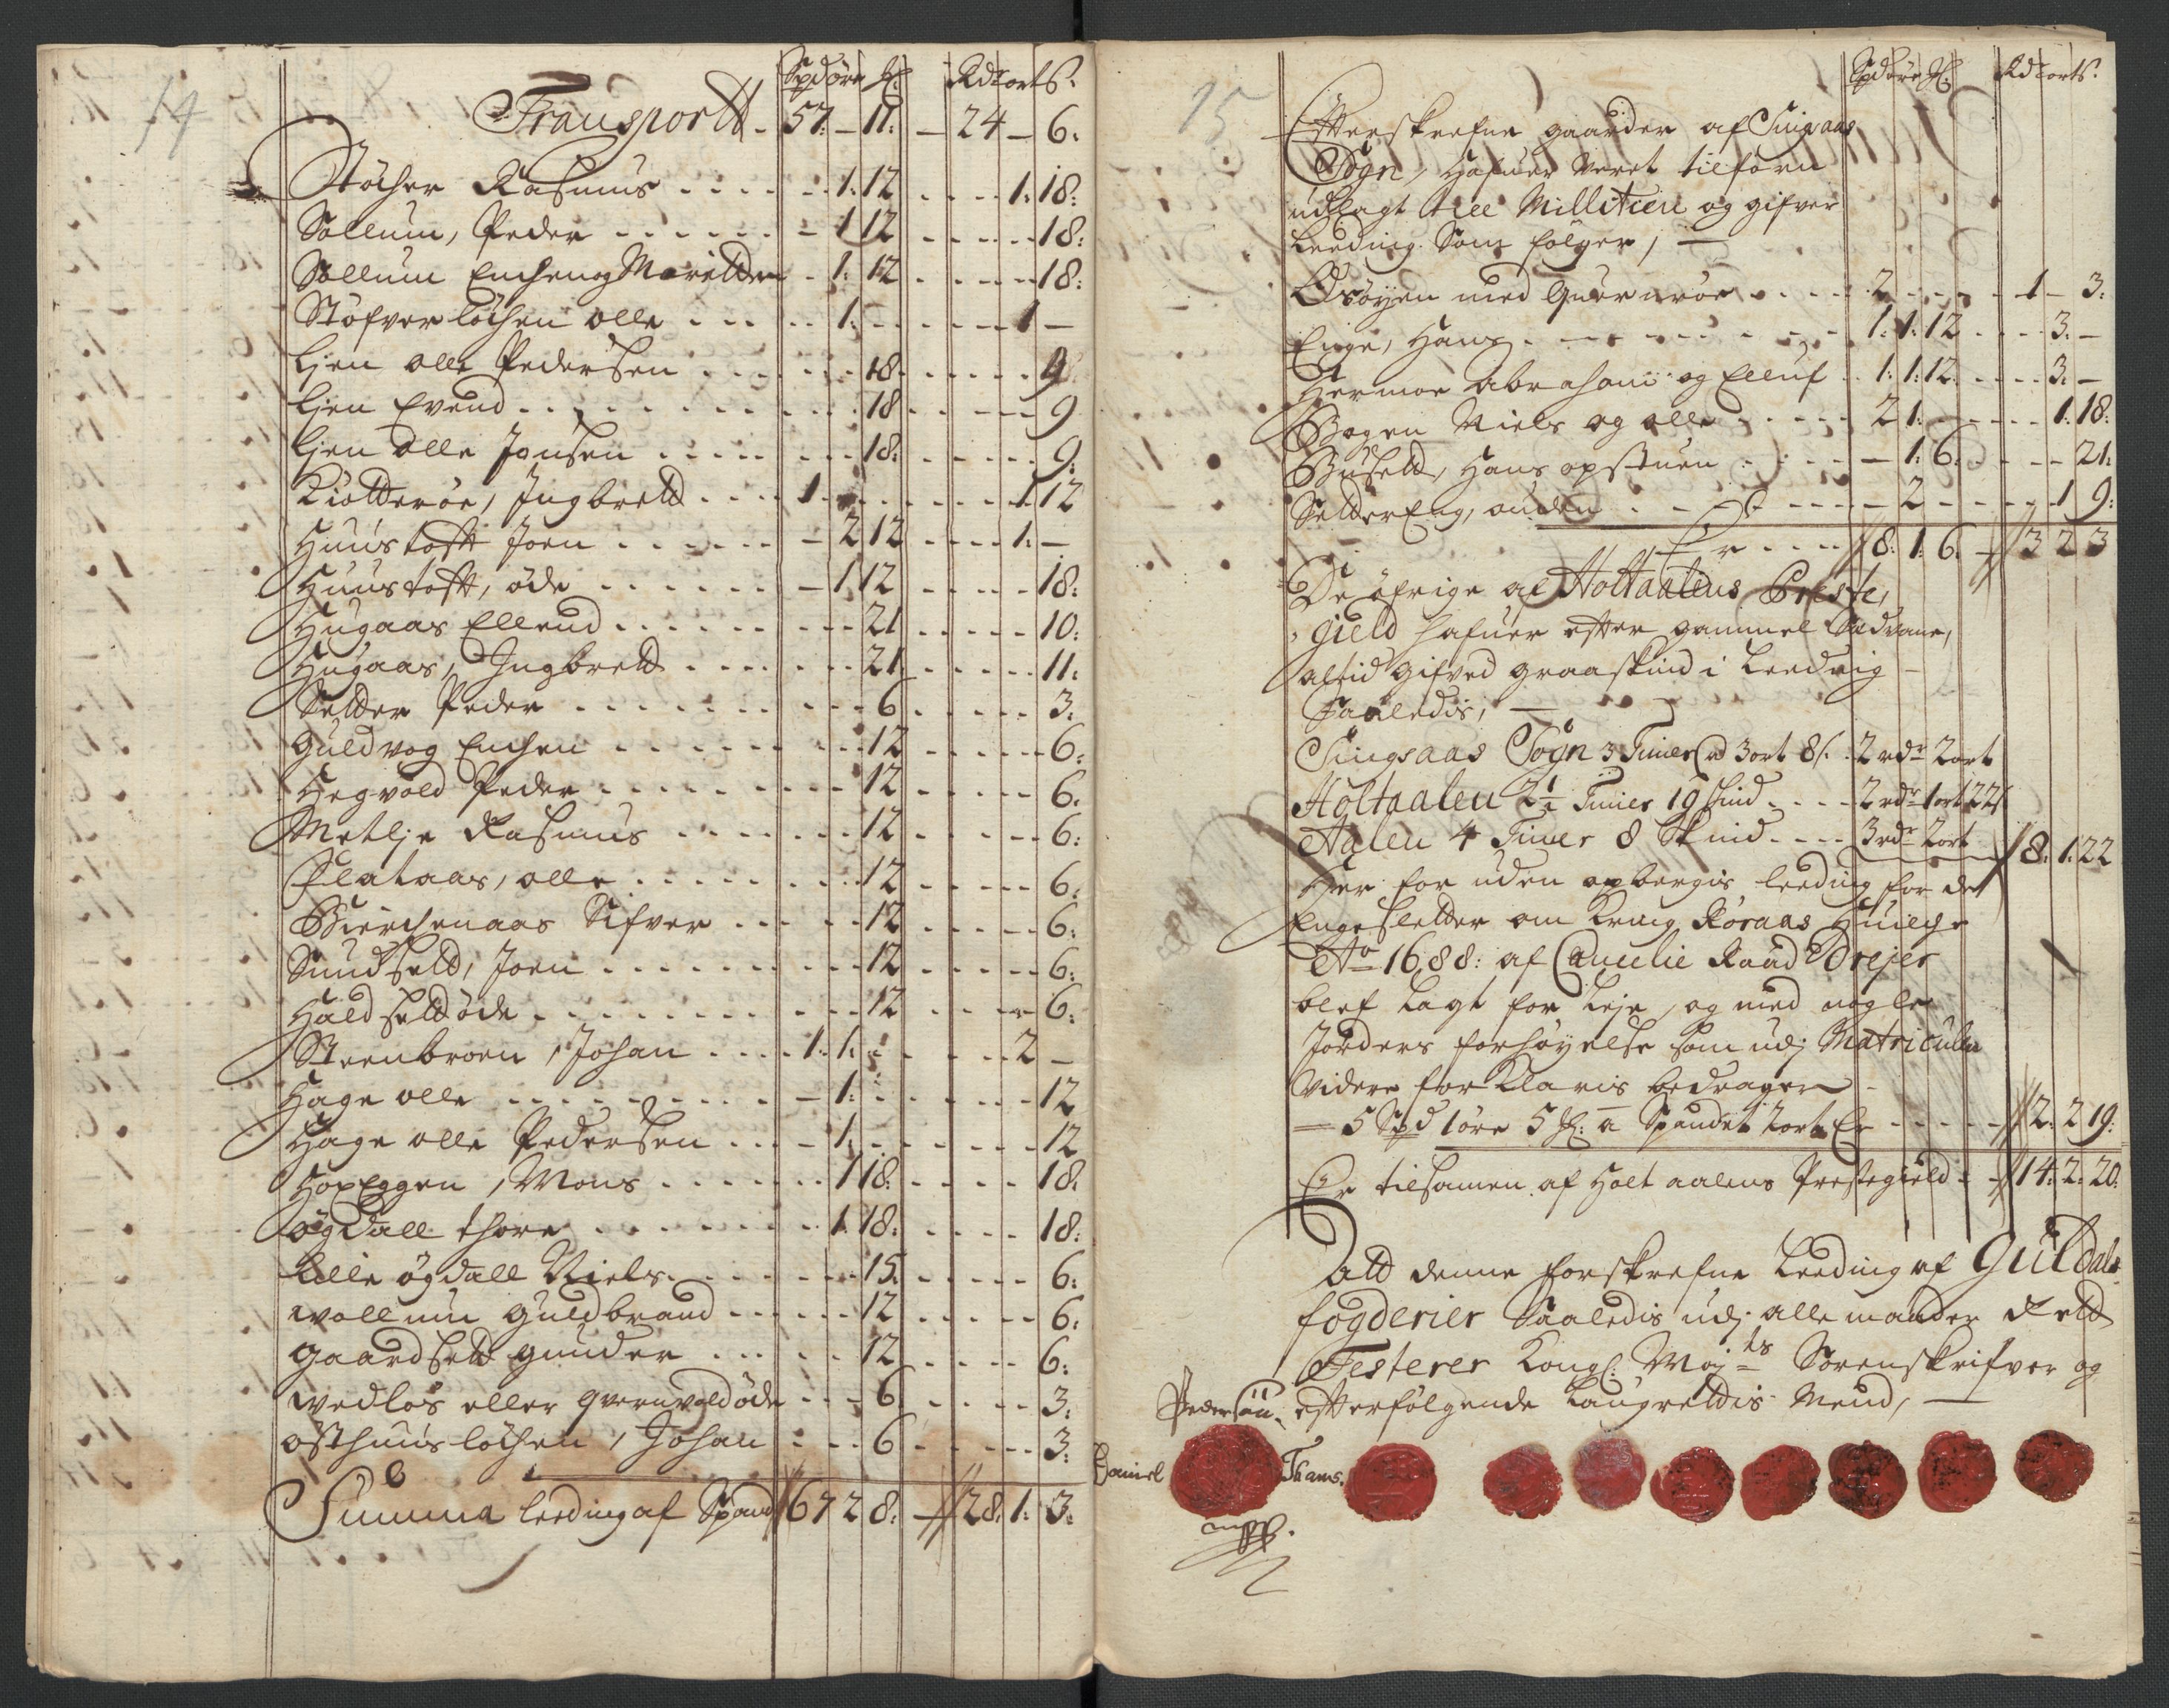 14
Spd öre ℳ: Rd ort S:
Transportt. 57: - 11: - 24 - 6:
Støcher Rasmus . . . . 1: 12 . . . . 1: 18:
Sollum, Peder . . . . - 1 12 . . . . 18:
Sollum Enchen og Moritten - 1: 12 . . . . 18:
Støfverløchen olle . . . . 1: . . . . 1 -
Lien olle Pedersen . . . . 18 . . . . 9
Lien Evend . . . . 18 . . . . 9
Lien olle Jonsen . . . . 18: . . . . 9:
Kiotterøe, Ingbrett . . . . 1 . . . . 1: 12
Huustoft Joen . . . . - 2 12 . . . . 1: -
Huustoft, øde . . . . - 1: 12 . . . . 18:
Hugaas Ellend . . . . 21 . . . . 10:
Hugaas, Ingbrett . . . . 21 . . . . 11:
Setter Peder . . . . 6 . . . . 3:
Guldvog Enchen . . . . 12 . . . . 6:
Hegvold Peder . . . . 12 . . . . 6:
Metlje Rasmus . . . . 12 . . . . 6:
Flataas, olle . . . . 12 . . . . 6:
Bierchenaas Sifver . . . . 12 . . . . 6:
Sundsett, Joen . . . . 12 . . . . 6:
Haldsett øde . . . . 12 . . . . 6:
Steenbroen, Johan . . . . 1: 1: . . . . 2 -
Hage olle . . . . - 1: . . . . 12
Hage olle Pedersen . . . . - 1: . . . . 12
HopEggen, Mons . . . . 1 18: . . . . 18:
øgdall thore . . . . 1 18: . . . . 18:
Lille øgdall Niels . . . . 15: . . . . 6:
wollum guldbrand . . . . 12 . . . . 6:
gaardsett gunder . . . . 12 . . . . 6:
wedløs eller qvernvold øde . . . . 6 . . . . 3:
østhuusløchen, Johan . . . . 6 . . . . 3:
Summa leeding af Spand 67 2 8: - 28: 1: 3:
15
Spd öre ℳ: Rd ort S:
Efterskrefne gaarder af Singsaas
Sogn, hafuer veret tilforn
udlagt till Millitien og gifver
Leeding Som følger, —
Osøyen med Quernrøe . . . . 2 . . . . 1 - 3:
Enge, Hans . . . . 1: 1: 12 . . . . 3: -
Hermoe Abraham og Elluf . . 1: 1: 12 . . . . 3: -
Bogen Niels og olle . . . . 2 1: . . . . 1: 18:
Busett, Hans opstuen . . . . - 1: 6: . . . . 21:
SetterEng, anden . . . . - 2 . . . . 1 9:
Er . . . . 8: 1: 6: - 3 2 3
De øfrige af Holtaalens Preste,
gield hafuer efter gammel Sædvane,
altid gifved graaskind i Leeding -
Saaledis, —
Singsaas Sogn 3 Timer à 3 ort 8 s: 2 rdr 2 ort
Holtaalen 2½ Timer 19 skind . . . . 2 rdr 1 ort 22 s
Aalen 4 Timer 8 Skind . . . . 3 rdr 2 ort 8: 1: 22
Her for uden opbergis leeding for de
Engesletter om kring Røraas Huilche
Ao 1688: af Cancelie Raad Drejer
blef lagt for Leje, og med nogle
Jorders forhøyelse som udj Matriculen
videre forKlaris bedrager -
- 5 Spd 1 øre 5 ℳ: à Spandet 2 ort Er . . . . 2: 2 19:
Er tilsamen af Holtaalens Prestegield - 14: 2: 20:
Att denne forskrefne Leeding af Guldals
fogderier Saaledis udj alle maader rett
Testerer Kongl: Maj:ts Sorenskrifver og
efterfølgende Laugrettis Mend, —
Pedersøn
Daniel Thams.
mpp.